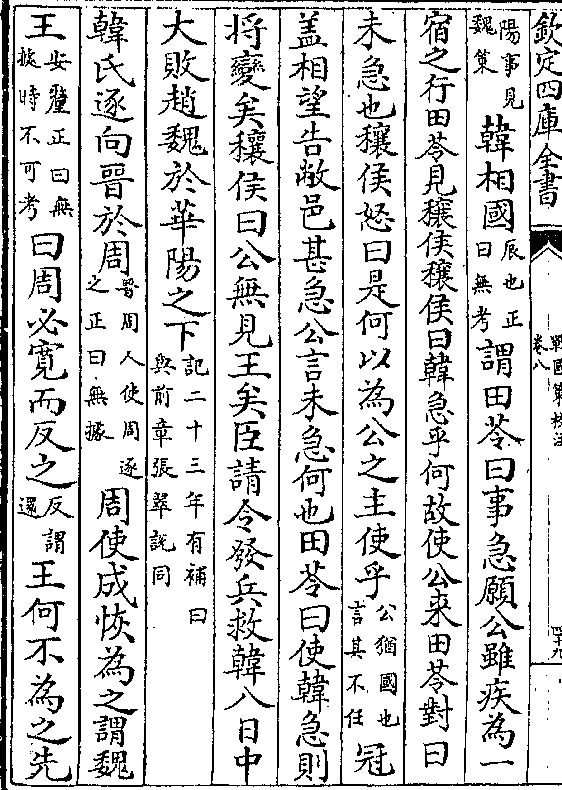 欽定四庫全書
戰國策校注
卷八
四十九
陽事見魏策韓相國辰也正曰無考謂田苓曰事急願公雖疾為一
宿之行田苓見穰侯穰侯曰韓急乎何故使公來田苓對曰
未急也穰侯怒曰是何以為公之主使乎公猶國也言其不任冠
盖相望告敝邑甚急公言未急何也田苓曰使韓急則
将變矣穰侯曰公無見王矣臣請令發兵救韓八日中
大敗趙魏於華陽之下記二十三年有補曰與前章張翠說同
韓氏逐向晉於周晉周人使周逐之正曰無據周使成恢為之謂魏
王安釐正曰無據時不可考曰周必寛而反之反謂還王何不為之先